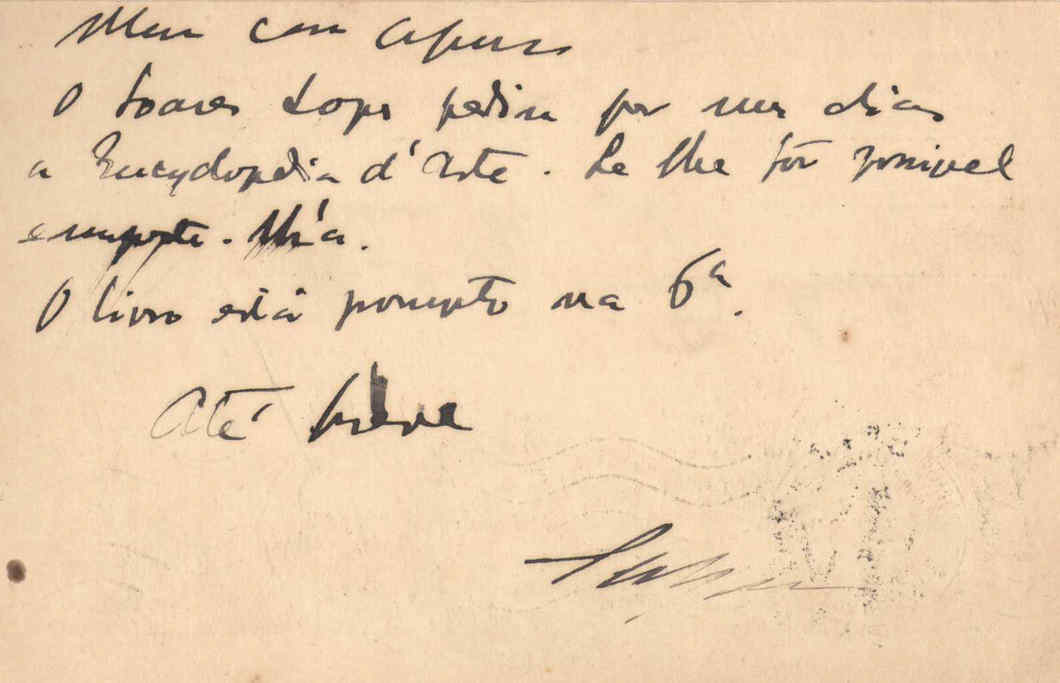 Meu caro
O Soares Lopes pediu por uns dias
a Encyclopedia d'Arte. Se lhe fôr possivel
empreste-lh'a.
O livro está prompto na 6ª.
Até breve